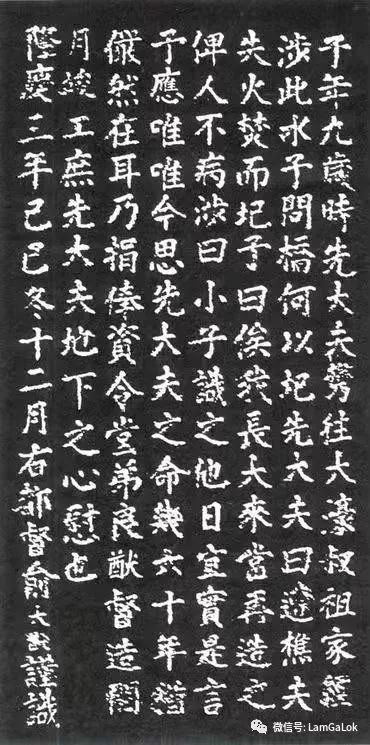 予年九歲時先大夫攜往大濠叔祖家經
涉此水予問橋何以圮先大夫曰遭樵夫
失火焚而圮予曰俟我長大來當再造之
俾人不病涉曰小子識之他日宜實是言
予應唯唯今思先大夫之命幾六十年猶
儼然在耳乃捐俸資令堂弟良猷督造閱
月竣工庶先大夫地下之心慰也
隆慶三年己巳冬十二月右都督俞大猷謹識
微信号: LamGaLok